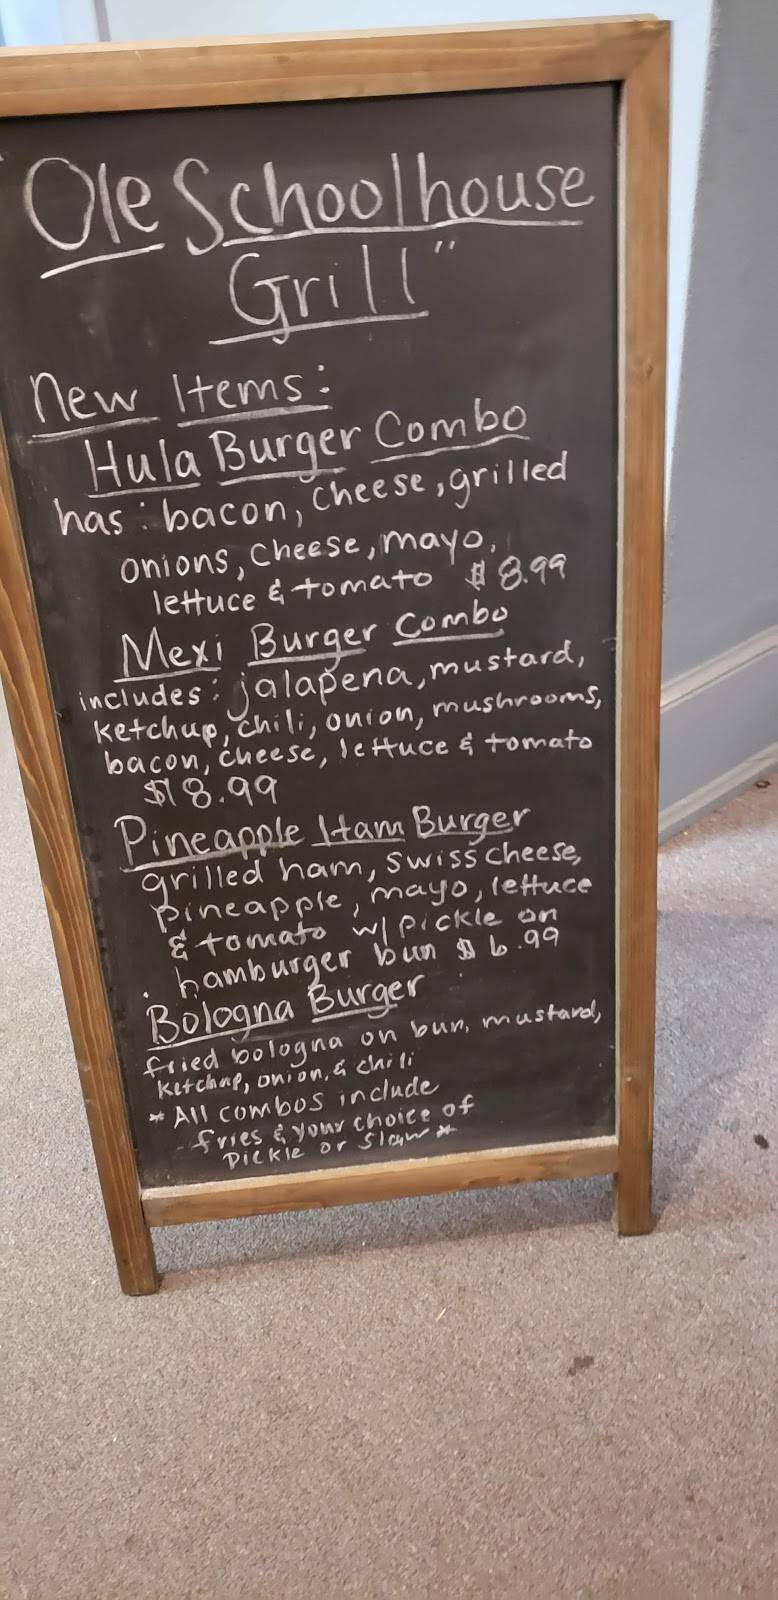 Ole Schoolhouse
Grill"
New Items:
Hula Burger Combo
has: bacon, cheese, grilled
onions, cheese, mayo,
lettuce & tomato $8.99
Mexi Burger Combo
includes: jalapena, mustard,
ketchup, chili, onion, mushrooms,
bacon, cheese, lettuce & tomato
$8.99
Pineapple Ham Burger
grilled ham, swiss cheese,
pineapple, mayo, lettuce
& tomato w/ pickle on
hamburger bun $6.99
Bologna Burger
fried bologna on bun, mustard,
ketchup, onion, & chili
* All combos include
- fries & your choice of
pickle or slaw *